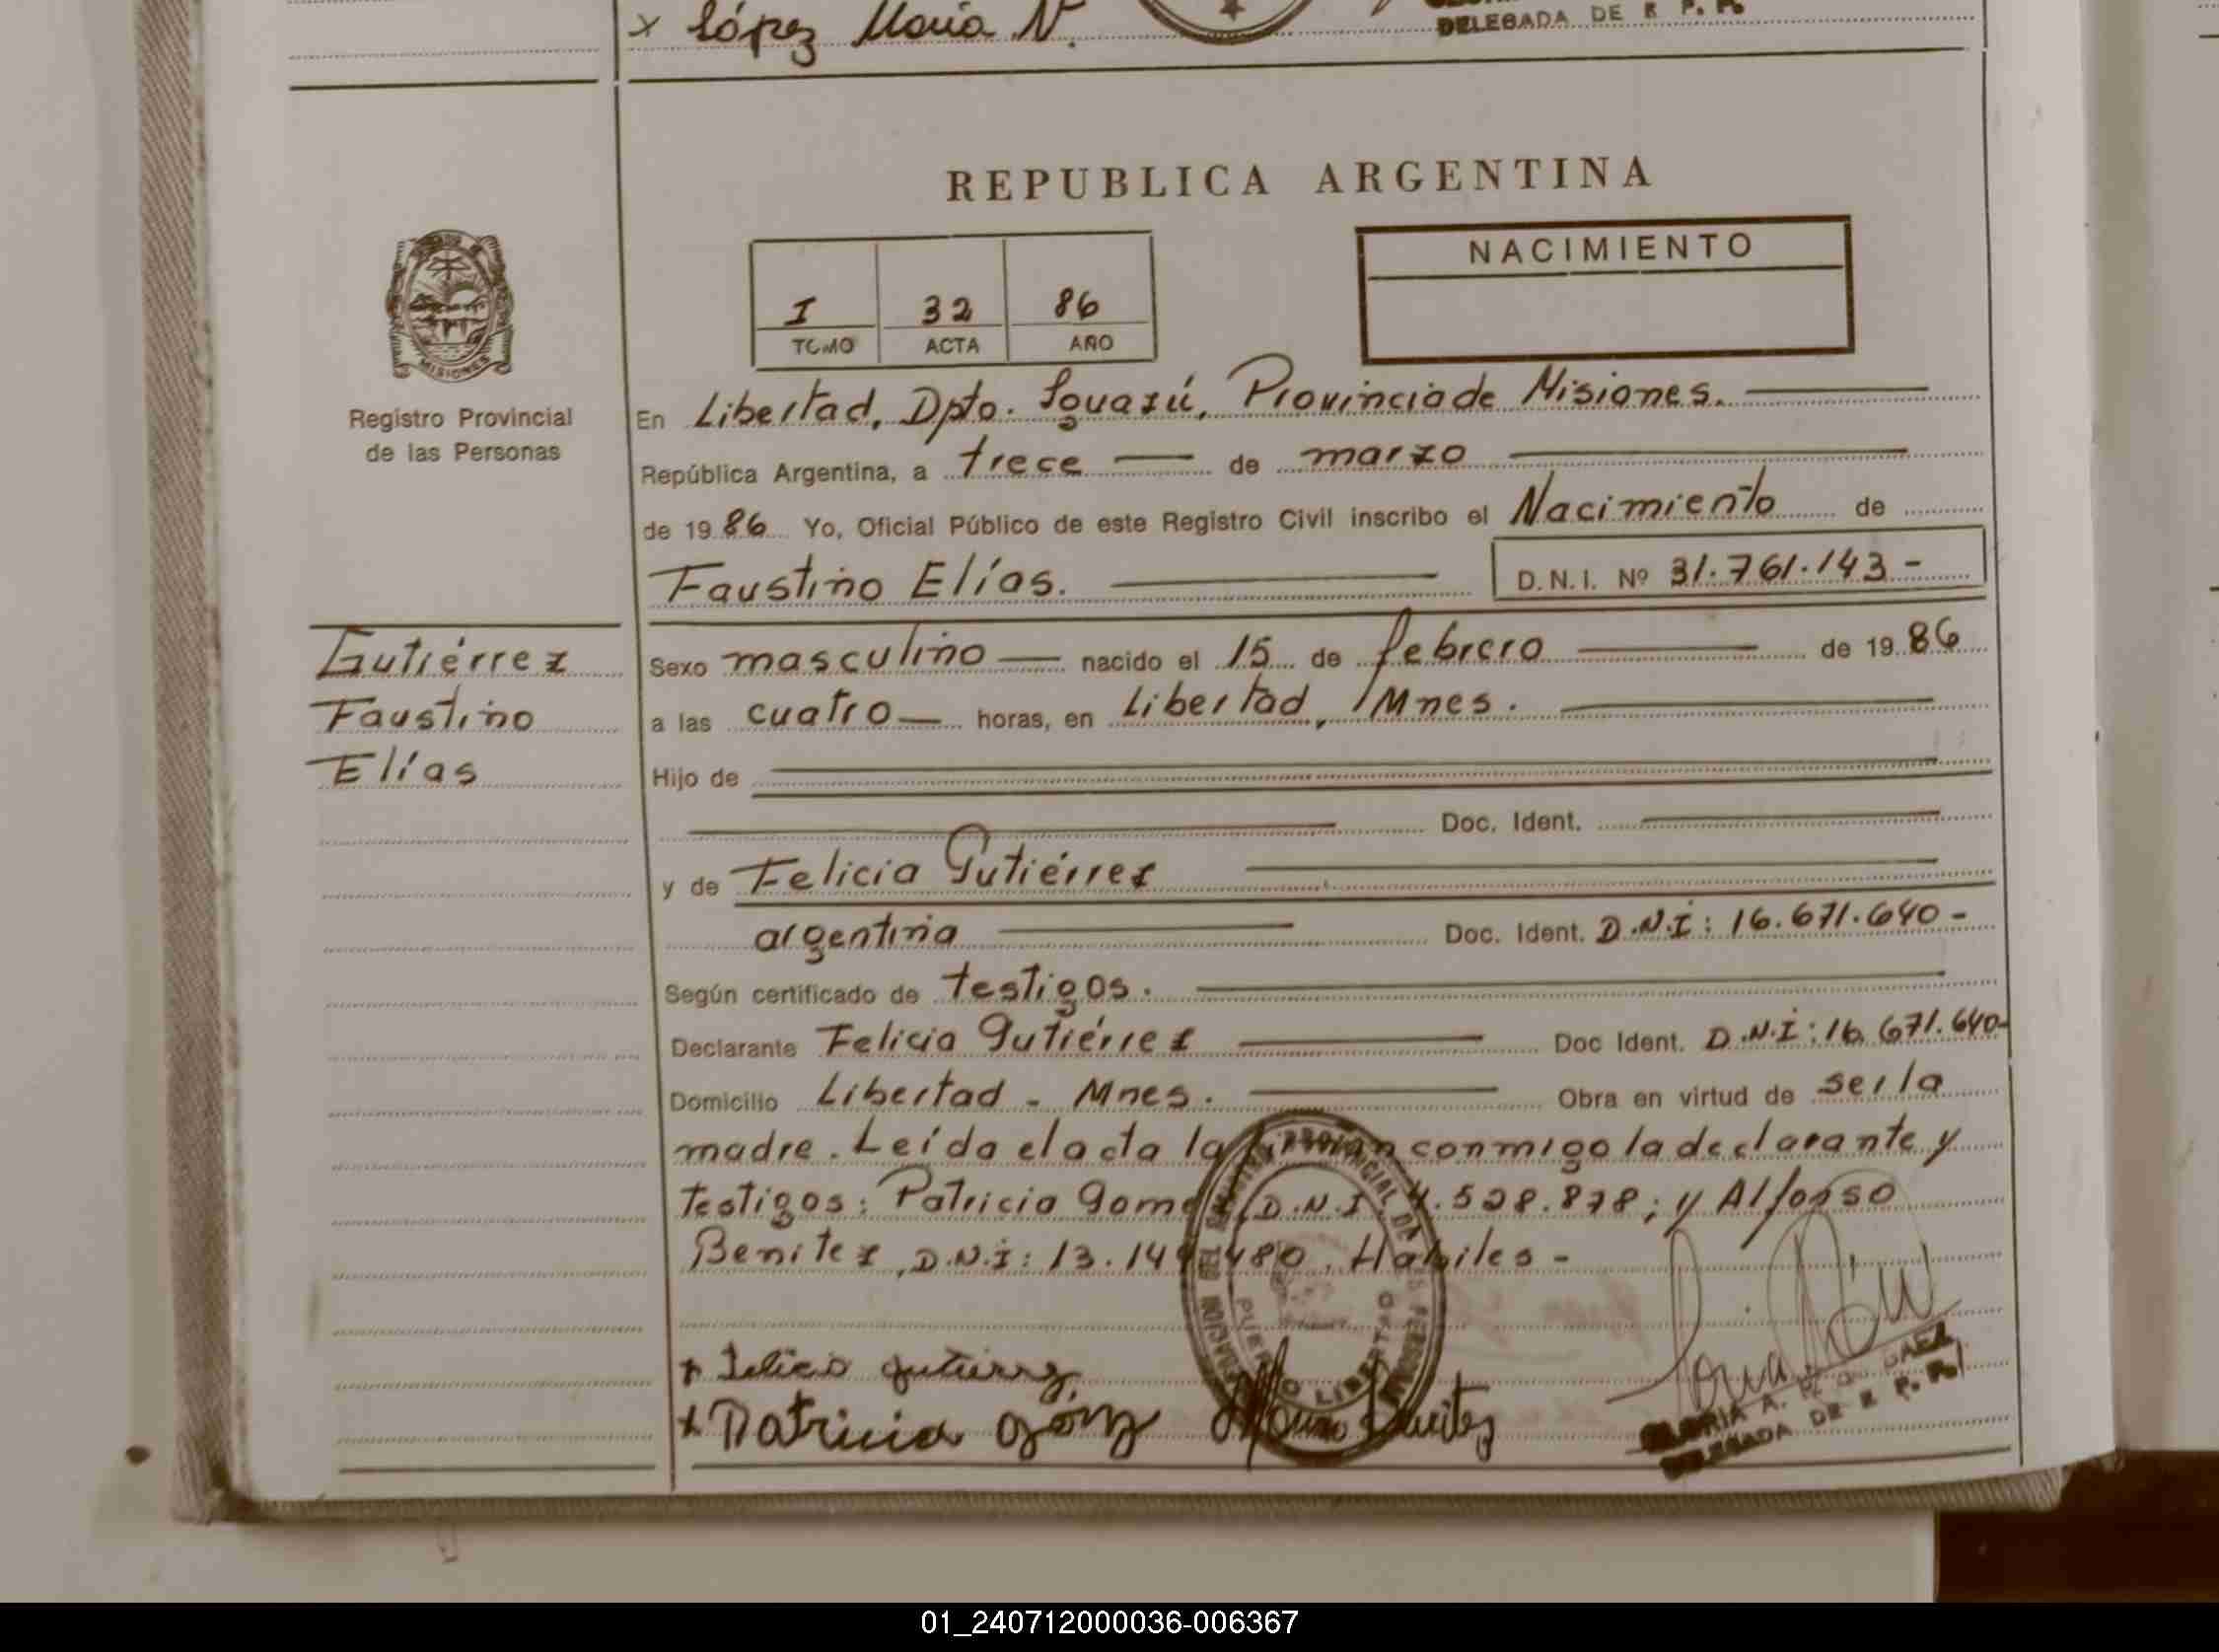 x López María N.
DELEGADA DE R P. P.
REPUBLICA ARGENTINA
NACIMIENTO
I 32 86
TOMO ACTA AÑO
MISIONES
Registro Provincial
de las Personas
En Libertad, Dpto. Iguazú, Provincia de Misiones.
República Argentina, a trece de marzo
de 19 86 Yo, Oficial Público de este Registro Civil inscribo el Nacimiento de
Faustino Elías. D.N.I. Nº 31.761.143-
Gutiérrez
Faustino
Elías
Sexo masculino nacido el 15 de febrero de 19 86
a las cuatro horas, en Libertad, Mnes.
Hijo de
Doc. Ident.
y de Felicia Gutiérrez
argentina Doc. Ident. D.N.I: 16.671.640-
Según certificado de testigos.
Declarante Felicia Gutiérrez Doc Ident. D.N.I: 16.671.640-
Domicilio Libertad - Mnes. Obra en virtud de ser la
madre. Leída el acta la firman conmigo la declarante y
testigos: Patricia D.N.I. .528.878; y Alfonso
Benitez, D.N.I: 13.14 480. Habiles -
x Felicia Gutierrez
x Patricia
GLORIA A.
DELEGADA DE R P. P.
01_240712000036-006367